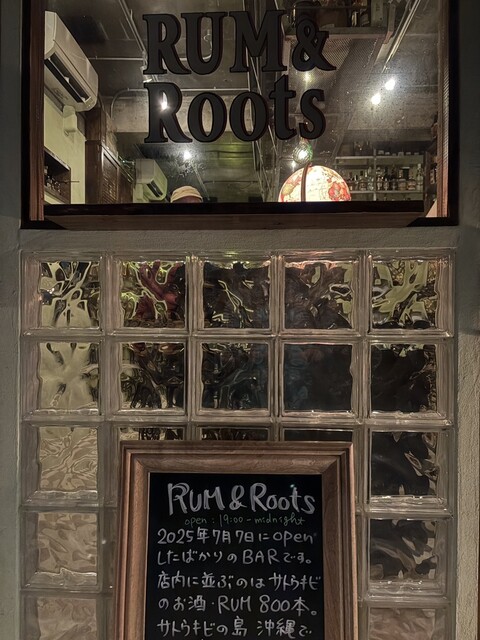 RUM&
Roots
RUM & Roots
open : 19:00 - midnight
2025年7月7日にopen
したばかりのBARです。
店内に並ぶのはサトウキビ
のお酒・RUM 800本。
サトウキビの島 沖縄で